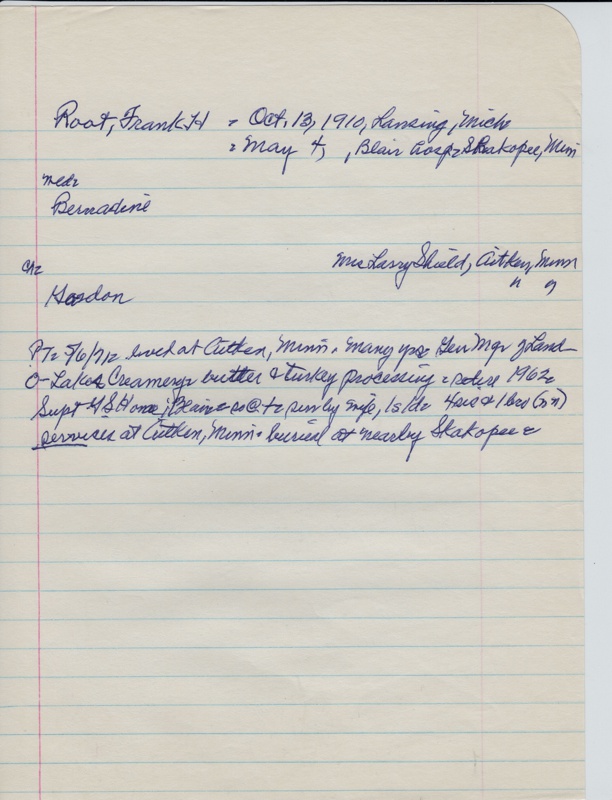 Root, Frank H = Oct. 13, 1910, Lansing, Mich
= May 4, , Blair Hosp = Shakopee, Minn
med=
Bernadine
ch= Mrs Larry Shield, Aitken, Minn
Haadon " "
PT= 5/6/71= lived at Aitken, Minn = many yrs = Gen Mgr of Land
O- Lakes Creamery = butter & turkey processing = retire 1962=
Supt Home, Blaine = surv by wife, 1s 1d= 4 sis & 1 bro (nn)
services at Aitken, Minn = burial at nearby Skakopee =